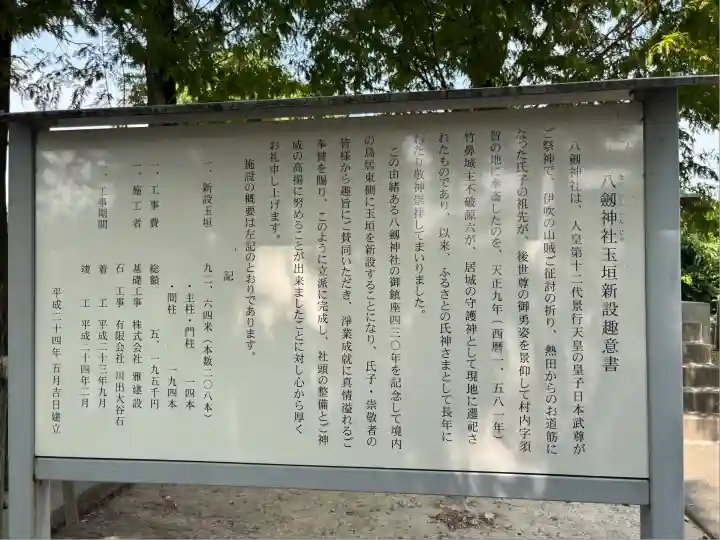 八劔神社玉垣新設趣意書
八劔神社は、人皇第十二代景行天皇の皇子日本武尊が
ご祭神で、伊吹の山賊ご征討の折り、熱田からのお道筋に
なった氏子の祖先が、後世尊の御勇姿を景仰して村内字須
賀の地に奉斎したのを、天正九年(西暦一、五八一年)
竹鼻城主不破源六が、居城の守護神として現地に遷祀さ
れたものであり、以来、ふるさとの氏神さまとして長年に
わたり敬神崇拝してまいりました。
この由緒ある八劔神社の御鎮座四三〇年を記念して境内
の鳥居東側に玉垣を新設することになり、氏子・崇敬者の
皆様から趣旨にご賛同いただき、浄業成就に真情溢れるご
奉賛を賜り、このように立派に完成し、社頭の整備とご神
威の高揚に努めることが出来ましたことに対し心から厚く
お礼申し上げます。
施設の概要は左記のとおりであります。
記
一、新設玉垣 九二、六四米(本数二〇八本)
・主柱・門柱 一四本
・間柱 一九四本
一、工事費 総額 五、一九五千円
一、施工者 基礎工事 株式会社 雅建設
石工事 有限会社 川出大谷石
一、工事期間 着工 平成二十三年九月
竣工 平成二十四年二月
平成二十四年五月吉日建立